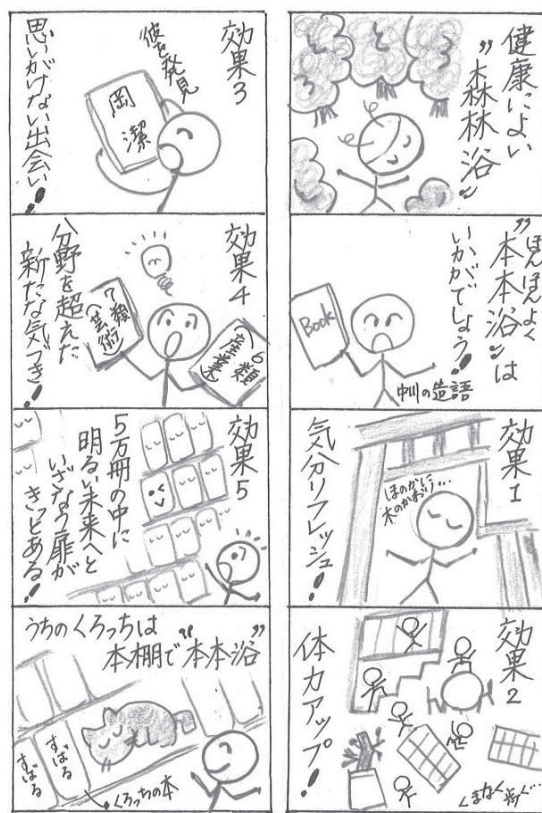 健康によい
"森林浴"
ほんぽんよく
"本本浴"は
いかがでしょう!
Book
中川の造語
効果1
ほのかに
木のかおり…
気分リフレッシュ!
効果2
体力アップ!
くまなく歩く…
効果3
彼を発見
岡潔
思いがけない出会い!
効果4
6類
(産業)
7類
(芸術)
分野を超えた
新たな気づき!
効果5
5万冊の中に
明るい未来へと
いざなう扉が
きっとある!
うちのくろっちは
本棚で"本本浴"
すばる
すばる
くろっちの本